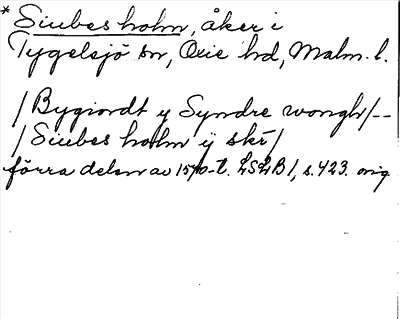 * Siubes holm, åker i
Tygelsjö sn, Oxie hd, Malm. l.
/Bygiordt y Syndre wongh/--
/Siubes holm ÿ skr/
förra delen av 1570-t. LSLB 1, s. 423. orig